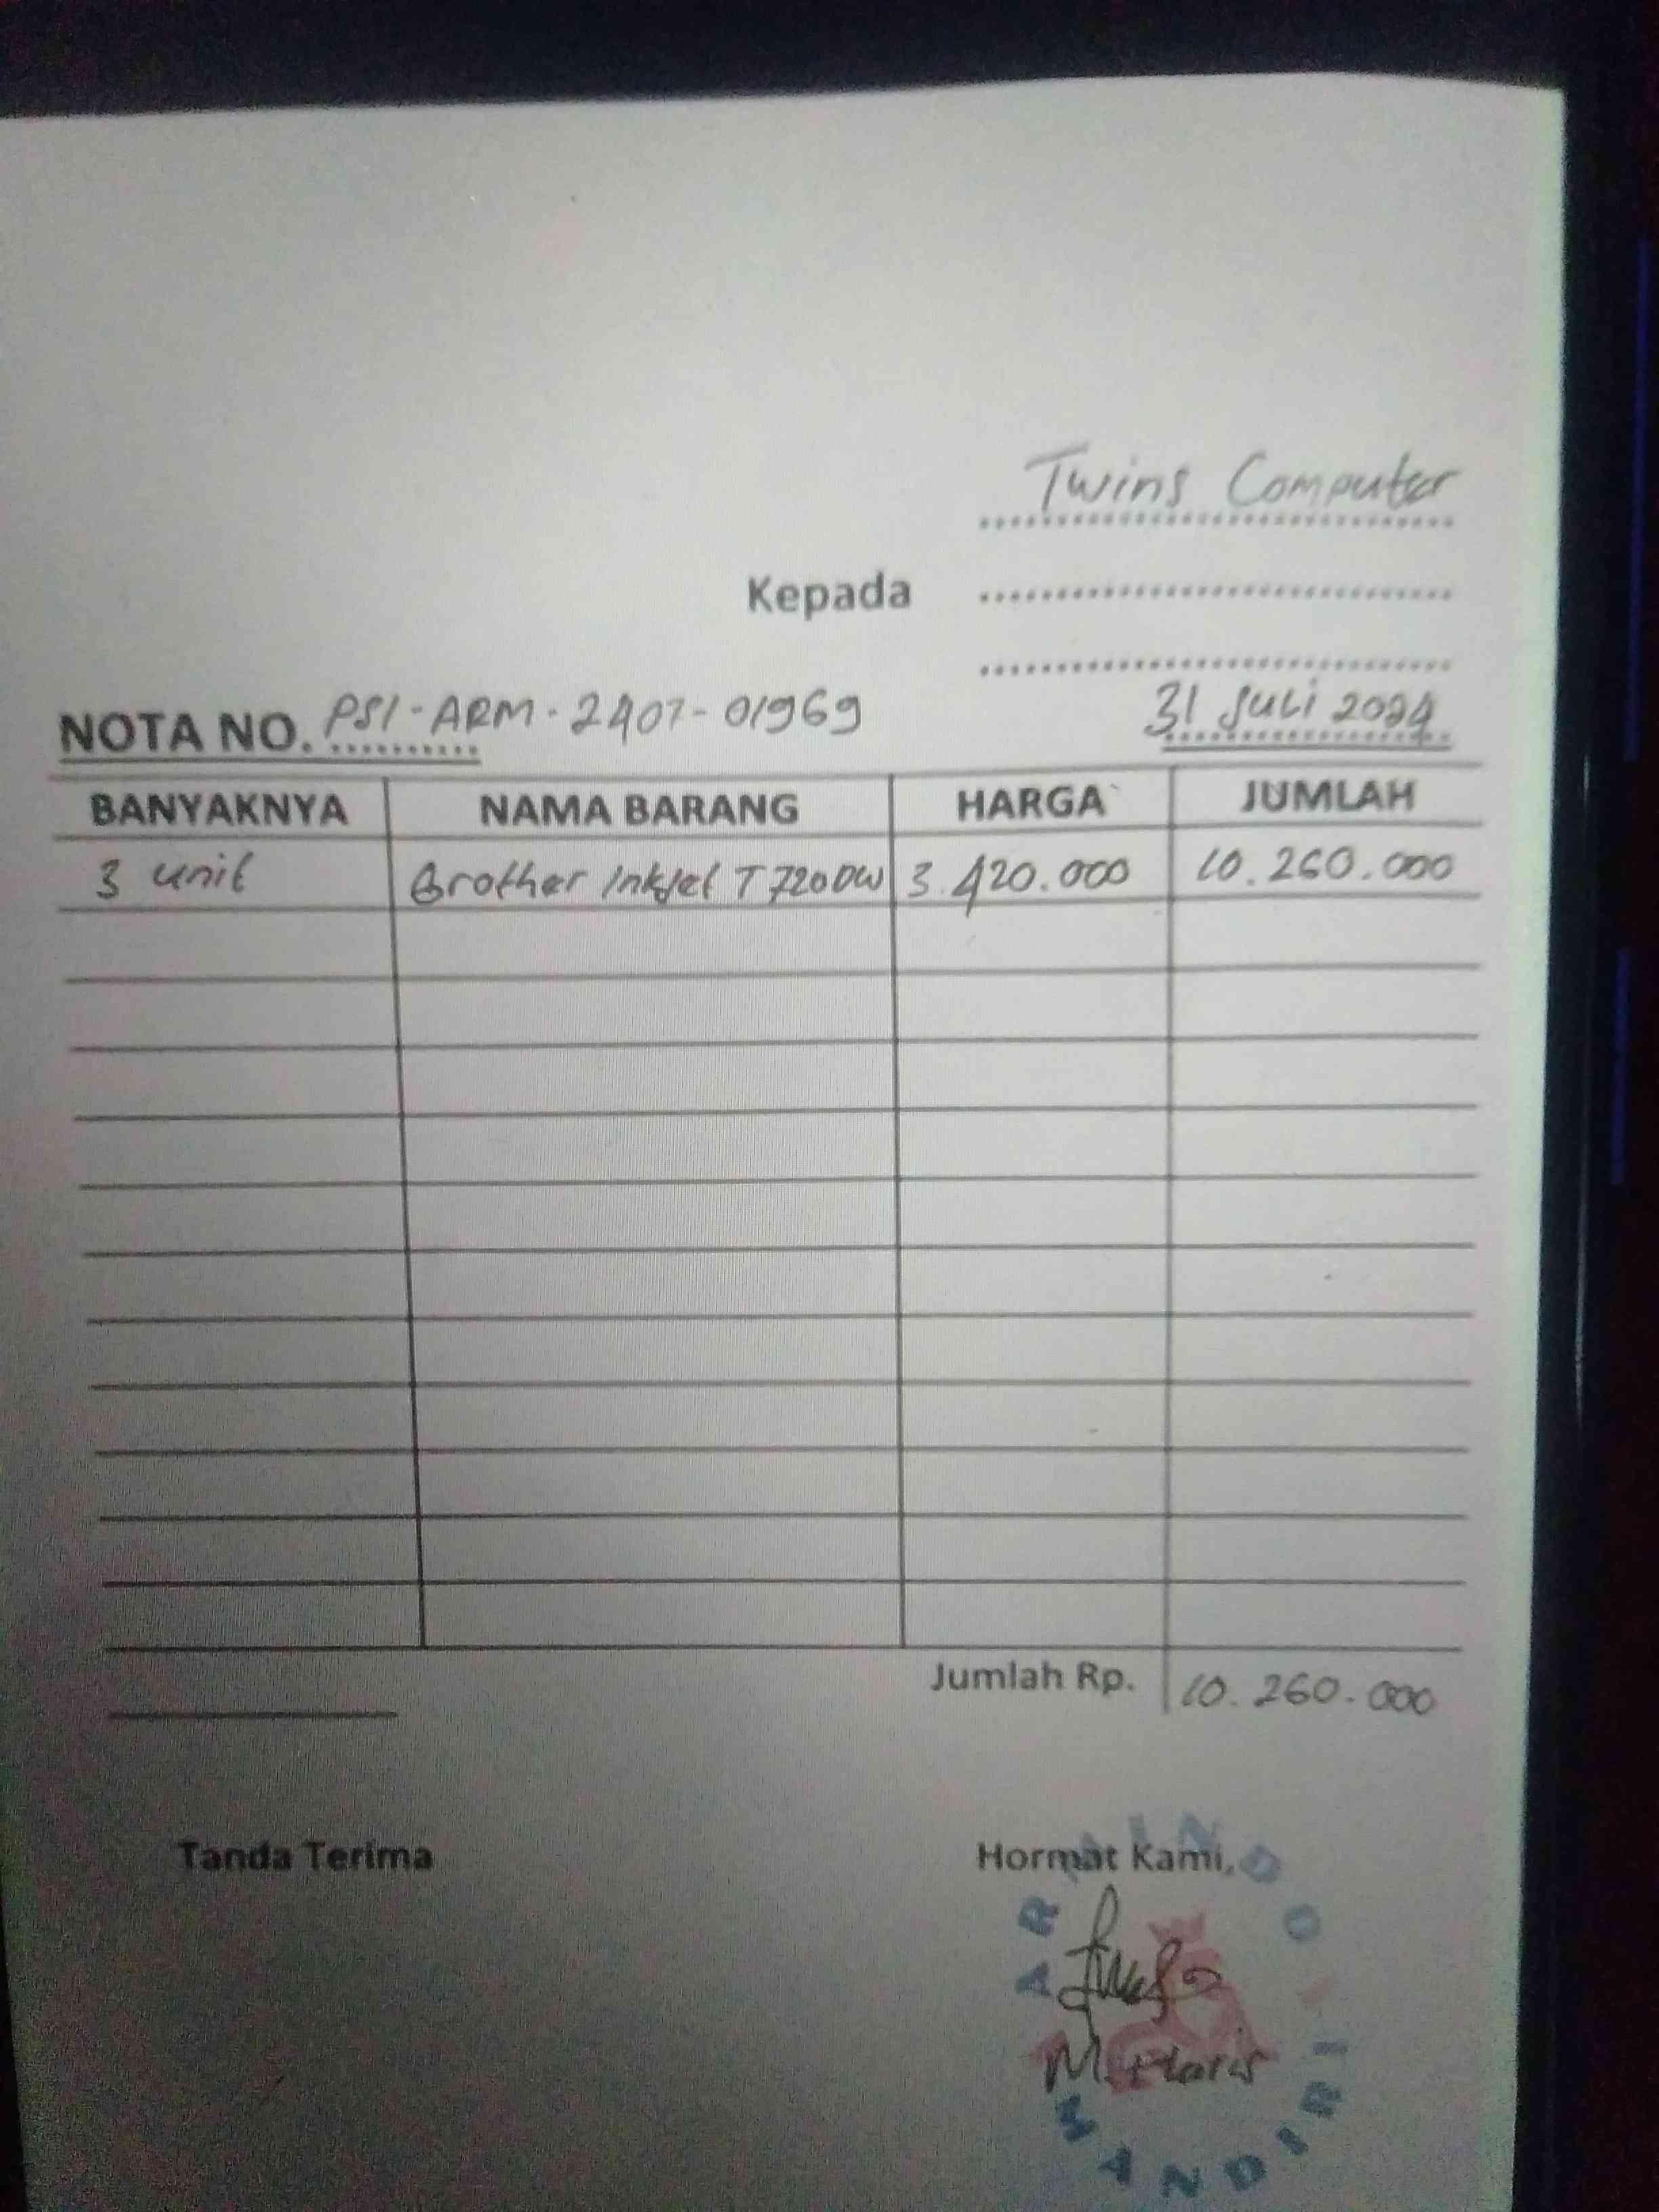 Twins Computer
Kepada
NOTA NO. PSI-ARM-2407-01969
31 Juli 2024
BANYAKNYA NAMA BARANG HARGA JUMLAH
3 unit Brother Inkjet T720DW 3.420.000 10.260.000
Jumlah Rp. 10.260.000
Tanda Terima Hormat Kami,
ARMINDO
M. Haris
MANDIRI